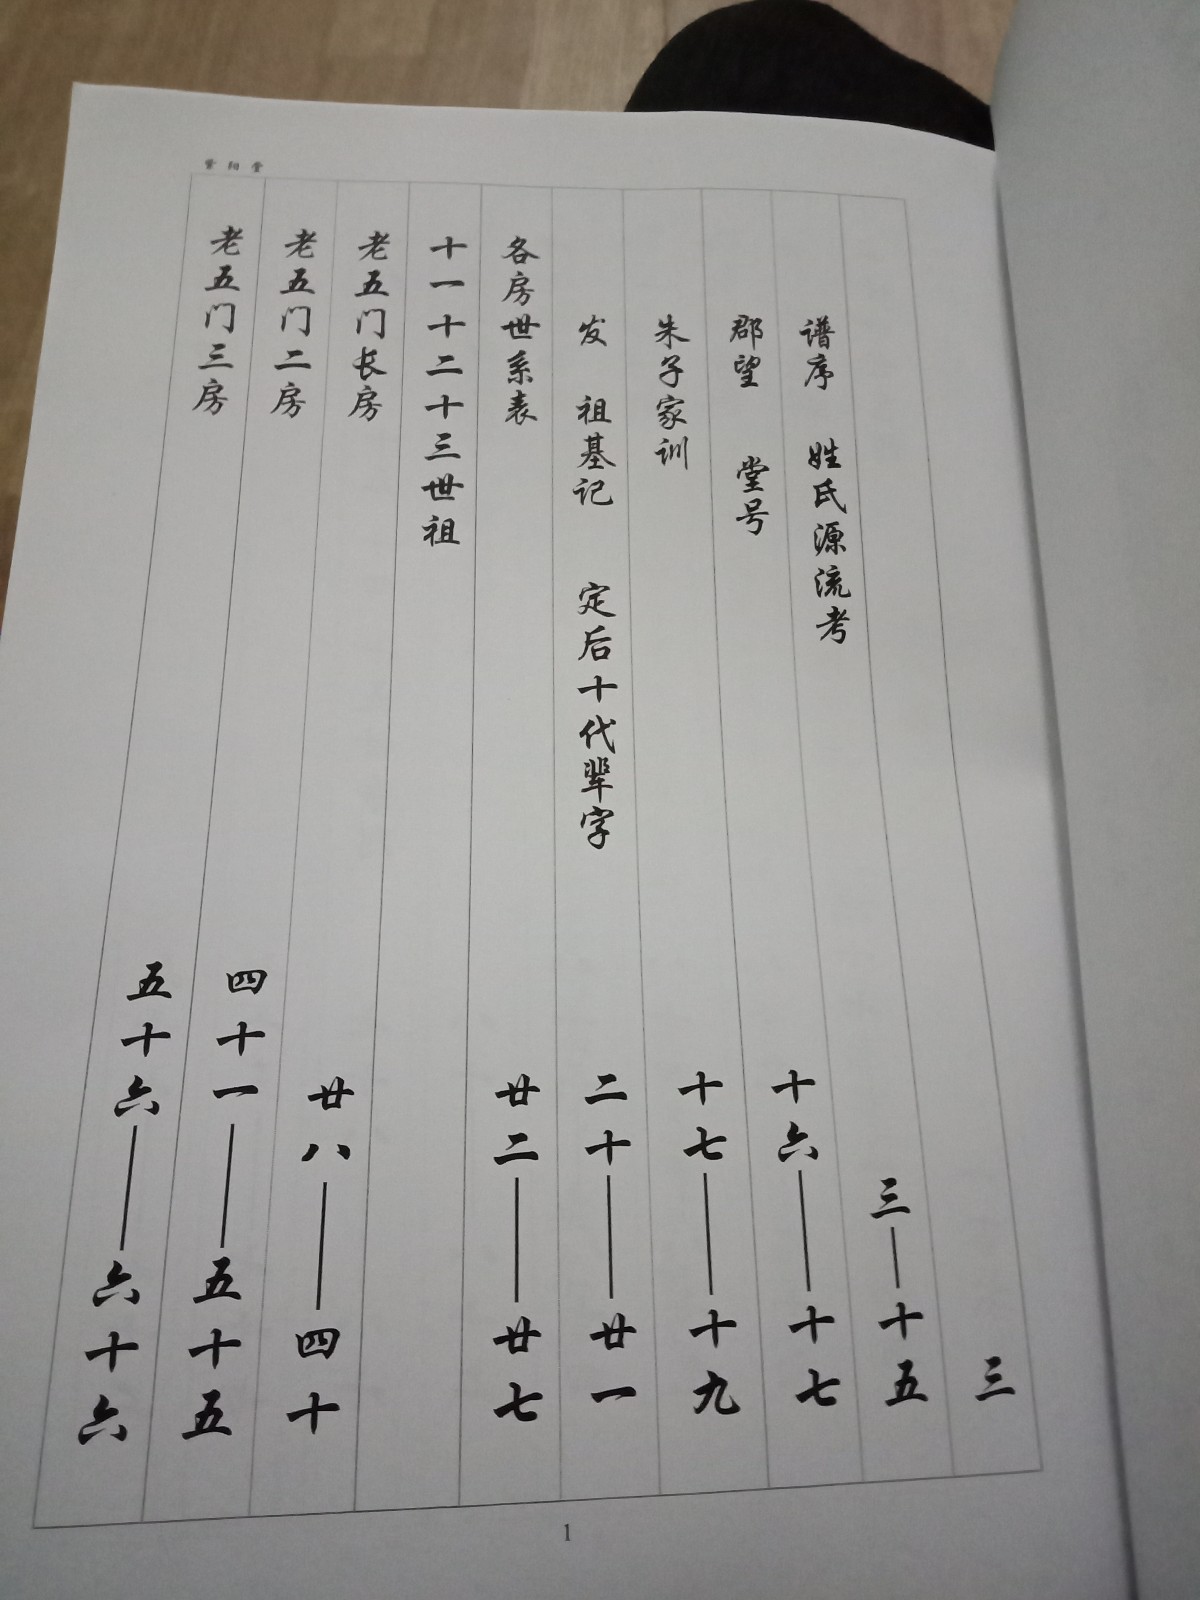 紫阳堂
三
谱序 姓氏源流考 三—十五
郡望 堂号 十六—十七
朱子家训 十七—十九
发 祖基记 定后十代辈字 二十—廿一
各房世系表 廿二—廿七
十一十二十三世祖
老五门长房 廿八—四十
老五门二房 四十一—五十五
老五门三房 五十六—六十六
1